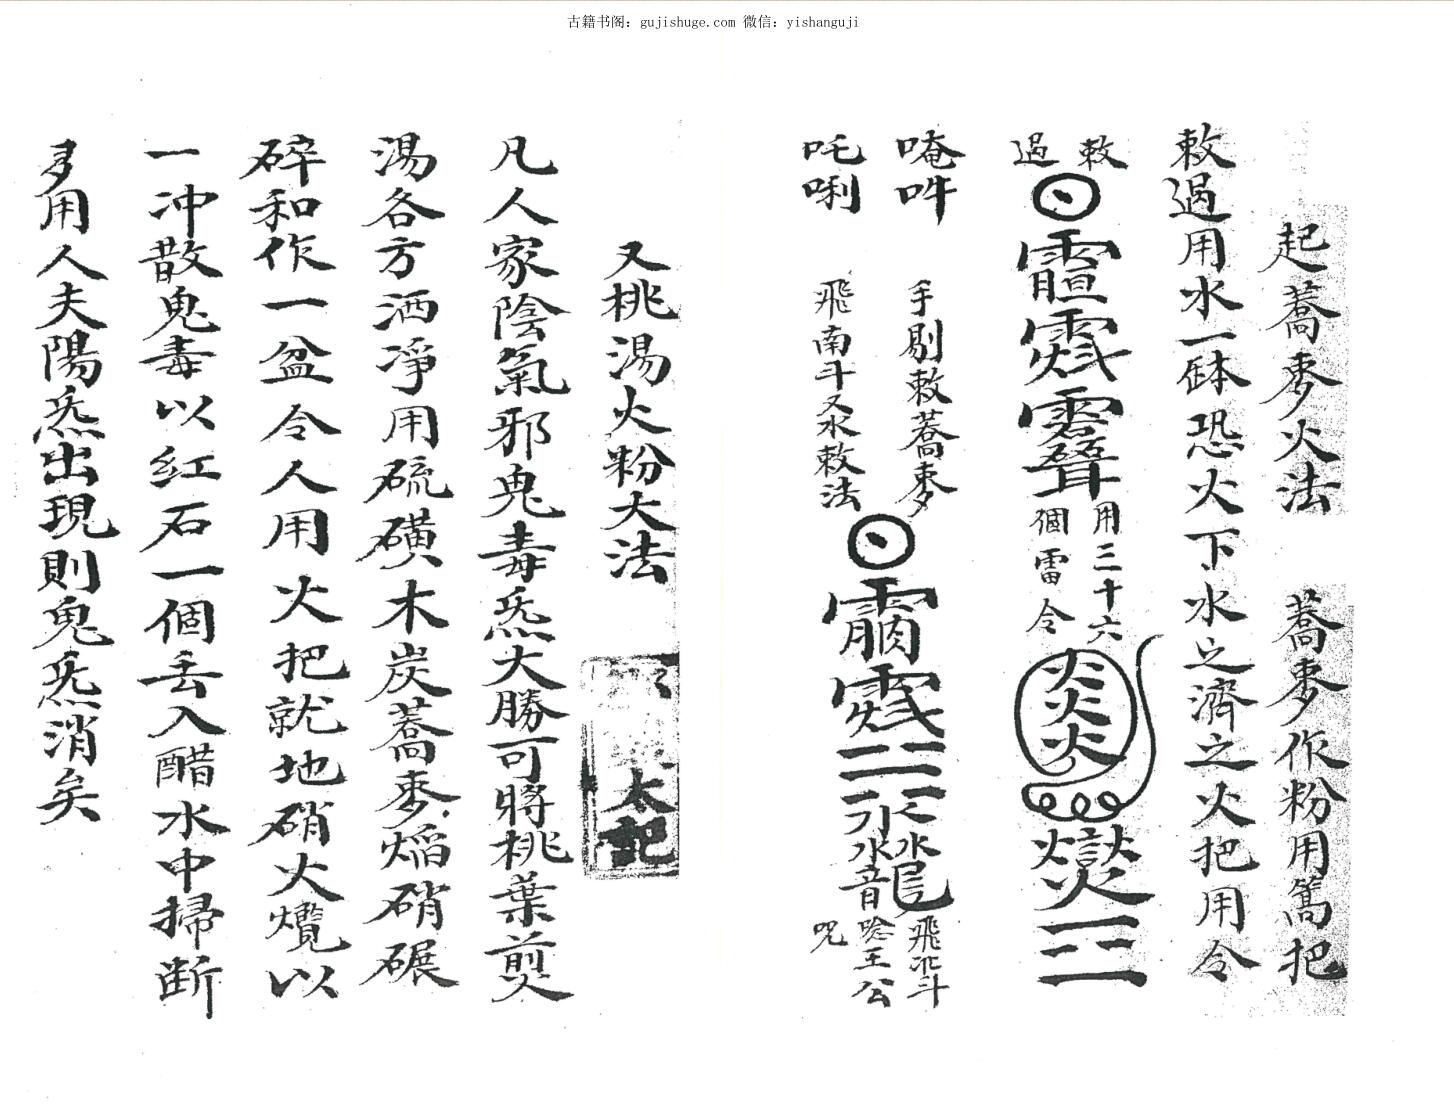 古籍书阁：gujishuge.com 微信：yishanguji
起蕎麥火法 蕎麥作粉用篙把
敕過用水一缽恐火下水之濟之火把用令
敕過
用三十六個雷令
炎炎火
唵吽 手剔敕蕎麥
吒唎 飛南斗又水敕法
飛北斗唸王公咒
又桃湯火粉大法
凡人家陰氣邪鬼毒炁大勝可將桃葉煎
湯各方洒淨用硫磺木炭蕎麥焰硝碾
碎和作一盆令人用火把就地硝火爁以
一冲散鬼毒以紅石一個丟入醋水中掃斷
多用人夫陽炁出現則鬼炁消矣